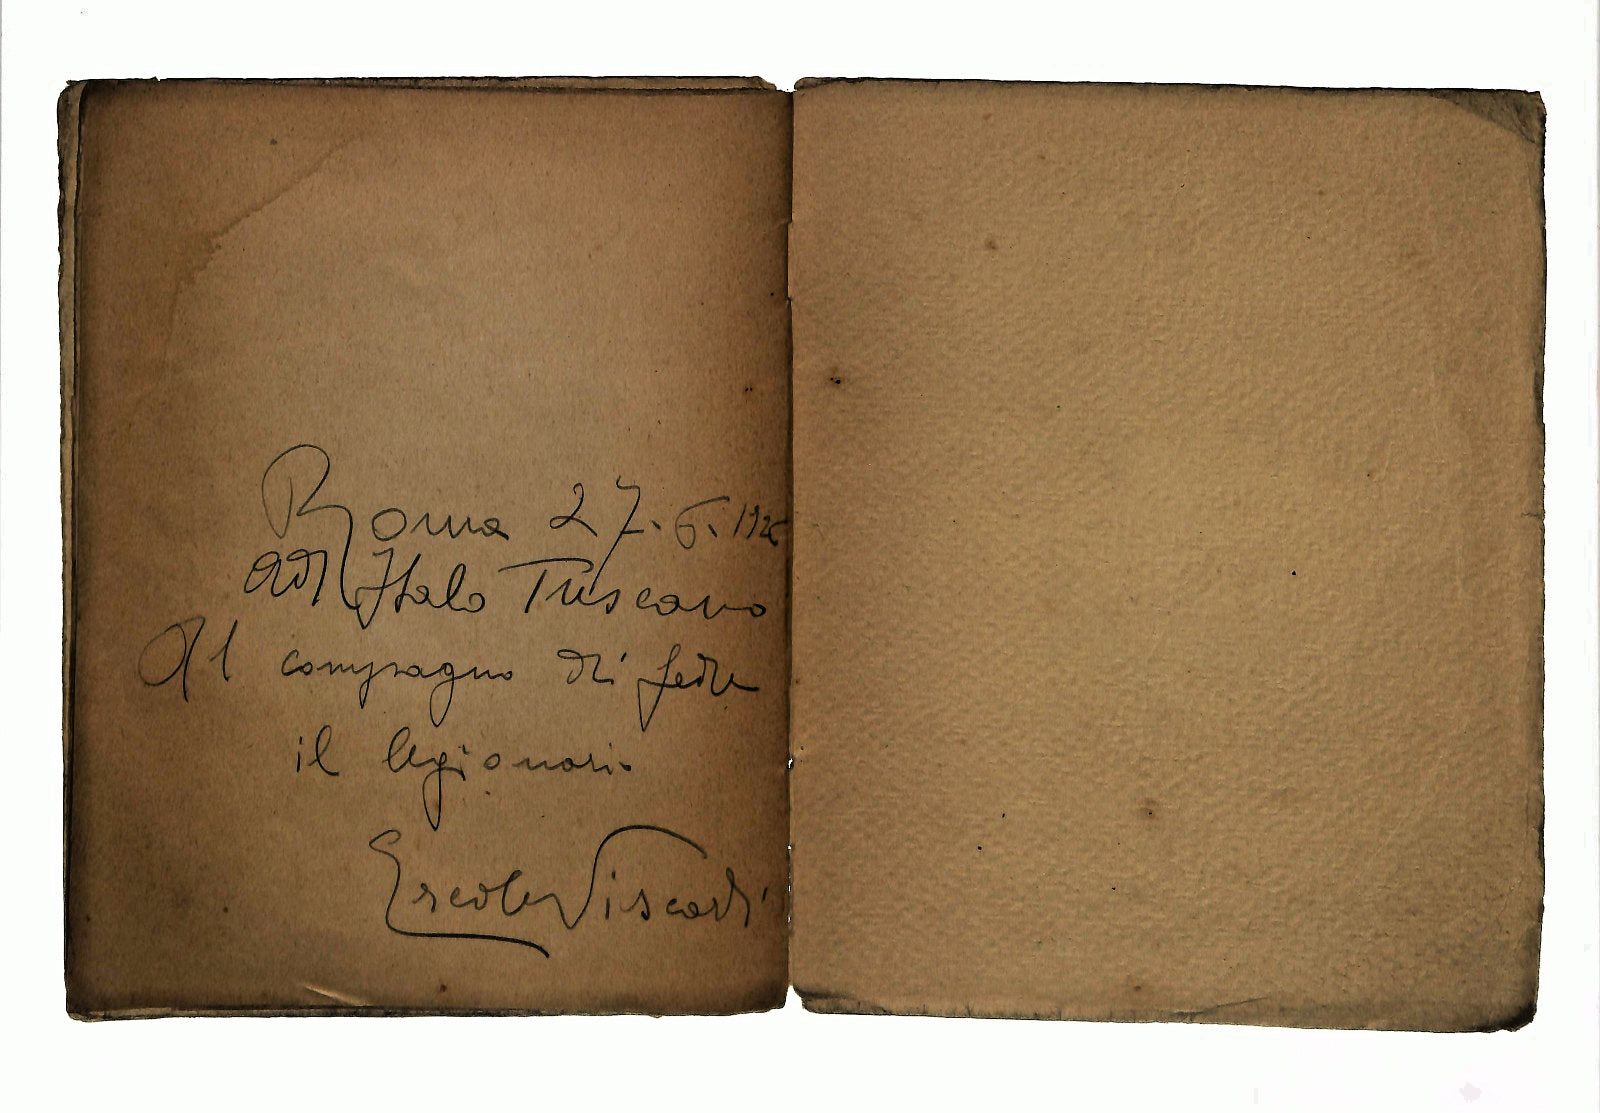 Roma 27.6.192
ad Italo Tuscano
Al compagno di fede
il legionario
Ercole Viscardi